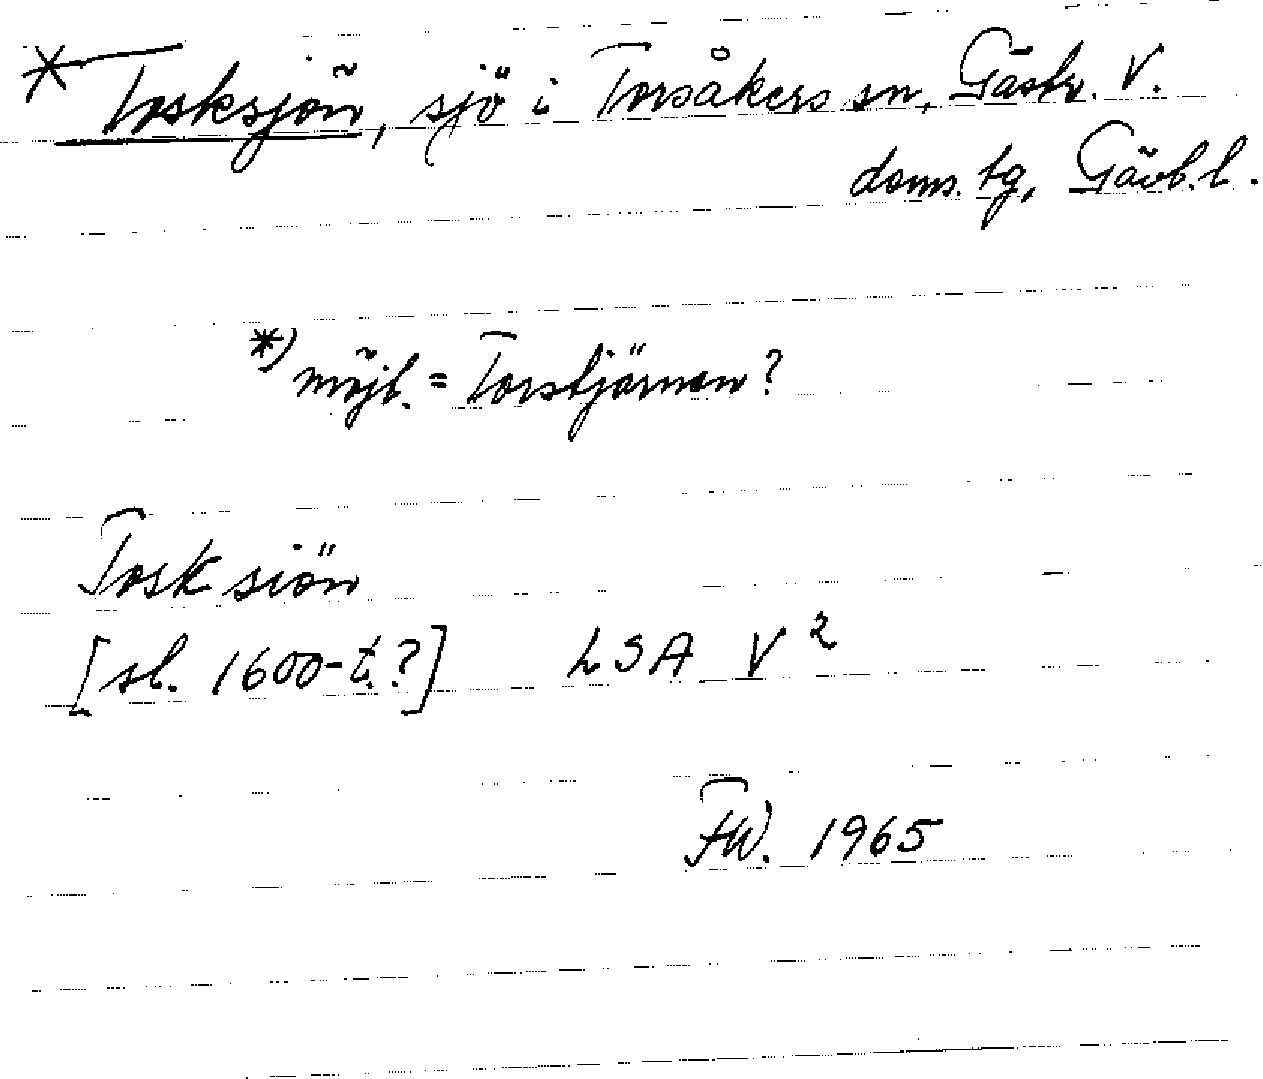 * Tosksjön, sjö i Torsåkers sn, Gästr. V.
doms. tg, Gävl. l.
*) möjl. = Torstjärnen?
Tosk siön
[sl. 1600-t.?] LSA V²
FW. 1965